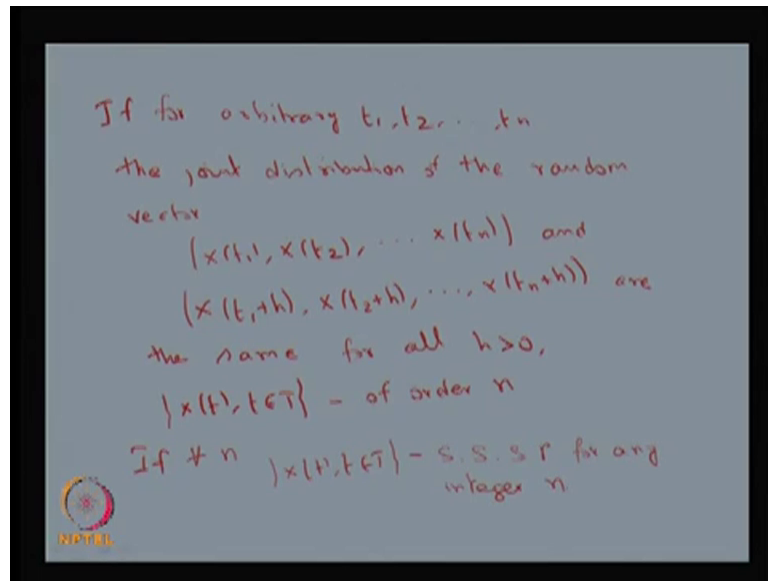 If for arbitrary t1, t2, ..., tn
the joint distribution of the random
vector
(x(t1), x(t2), ... x(tn)) and
(x(t1+h), x(t2+h), ..., x(tn+h)) are
the same for all h>0,
}x(t), t∈T} - of order n
If ∀ n }x(t), t∈T} - S.S.S P for any
integer n
NPTEL